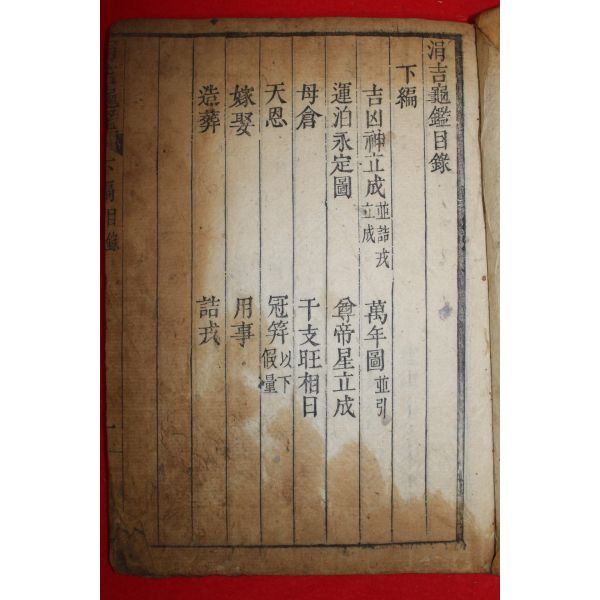 涓吉龜鑑目錄
下編
吉凶神立成 並詰戎立成 萬年圖 並引
運泊永定圖 尊帝星立成
母倉 干支旺相日
天恩 冠笄 以下假量
嫁娶 用事
造葬 詰戎
下編目錄 一